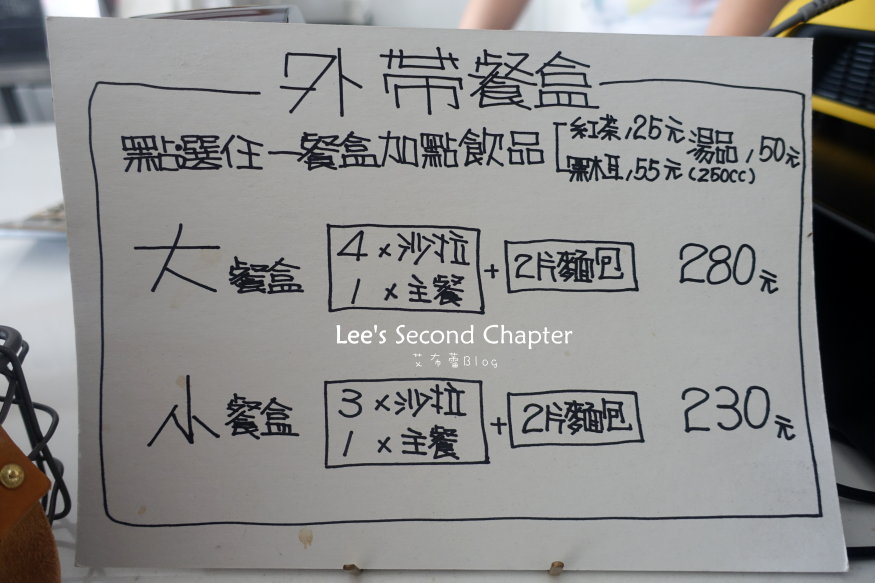 外帶餐盒
點選任一餐盒加點飲品 紅茶,25元 湯品,50元
黑木耳,55元 (250cc)
大餐盒 4×沙拉 + 2片麵包 280元
1×主餐
Lee's Second Chapter
艾布蕾Blog
小餐盒 3×沙拉 + 2片麵包 230元
1×主餐